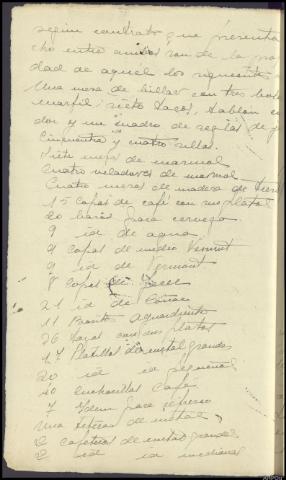 segun contrato que presenta
cho entre ambos son de la pro
dad de aquel los siguientes
Una mesa de billar con tres bolas
marfil, siete tacos, tablon co
dor y un cuadro de reglas de j
Cincuenta y cuatro sillas.
Siete mesas de marmol
Cuatro veladores de marmol
Cuatro mesas de madera de
15 Copas de café con sus platos
20 baros para cerveza
9 id de agua
9 Copas de medio Vermut
9 id de Vermout
8 Copas de
21 id de Coñac
11 Aguardiente
26 tazas con sus platos
17 Platillos de metal grandes
20 id id pequeños
40 cucharillas Café
7 Idem para refresco
Una de metal
2 cafeteras de metal grandes
2 id id medianas